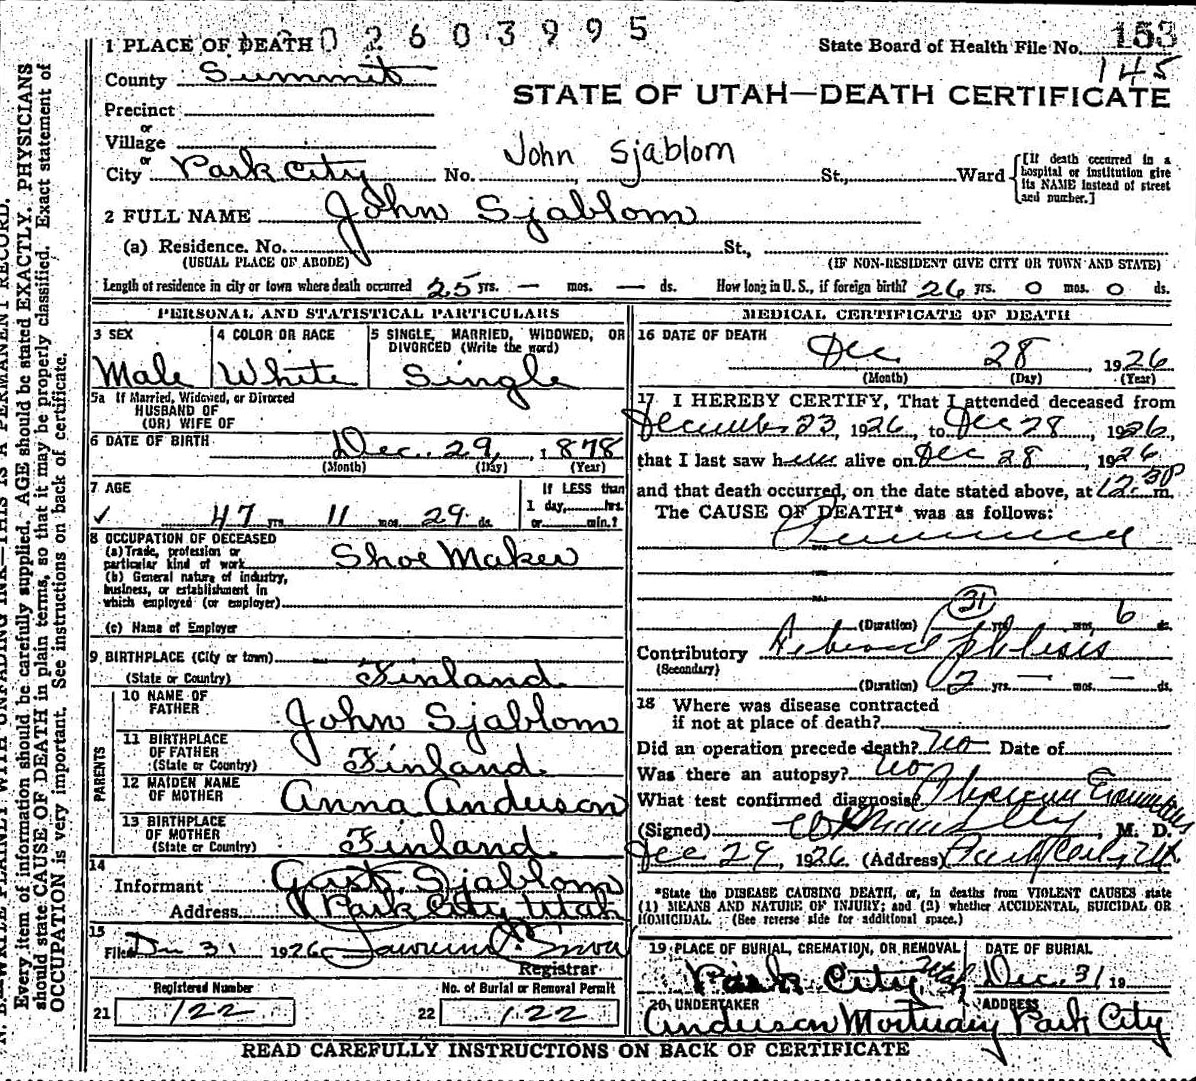 2603995
1 PLACE OF DEATH
State Board of Health File No. 153
145
County Summit
STATE OF UTAH—DEATH CERTIFICATE
Precinct
or
Village
or
City Park City No. John Sjablom St., Ward [If death occurred in a hospital or institution give its NAME instead of street and number.]
2 FULL NAME John Sjablom
(a) Residence. No. St.,
(USUAL PLACE OF ABODE) (IF NON-RESIDENT GIVE CITY OR TOWN AND STATE)
Length of residence in city or town where death occurred 25 yrs. — mos. — ds. How long in U.S., if foreign birth? 26 yrs. 0 mos. 0 ds.
PERSONAL AND STATISTICAL PARTICULARS
3 SEX
Male
4 COLOR OR RACE
White
5 SINGLE, MARRIED, WIDOWED, OR
DIVORCED (Write the word)
Single
5a If Married, Widowed, or Divorced
HUSBAND OF
(OR) WIFE OF
6 DATE OF BIRTH Dec. 29, 1878
(Month) (Day) (Year)
7 AGE
✓ 47 yrs. 11 mos. 29 ds.
If LESS than
1 day, hrs.
or min.?
8 OCCUPATION OF DECEASED
(a) Trade, profession or
particular kind of work Shoe Maker
(b) General nature of industry,
business, or establishment in
which employed (or employer)
(c) Name of Employer
9 BIRTHPLACE (City or town)
(State or Country) Finland
PARENTS
10 NAME OF
FATHER John Sjablom
11 BIRTHPLACE
OF FATHER
(State or Country) Finland
12 MAIDEN NAME
OF MOTHER Anna Anderson
13 BIRTHPLACE
OF MOTHER
(State or Country) Finland
14
Informant Gust. Sjablom
Address Park City Utah
15
Filed Dec 31 1926
Registrar
Registered Number
21 122
No. of Burial or Removal Permit
22 122
MEDICAL CERTIFICATE OF DEATH
16 DATE OF DEATH
Dec 28 1926
(Month) (Day) (Year)
17 I HEREBY CERTIFY, That I attended deceased from
December 23, 1926, to Dec 28, 1926,
that I last saw him alive on Dec 28, 1926
and that death occurred, on the date stated above, at 12:30 P m.
The CAUSE OF DEATH* was as follows:
Pneumonia
31
(Duration) yrs. mos. 6 ds.
Contributory Phthisis
(Secondary)
(Duration) 2 yrs. — mos. — ds.
18 Where was disease contracted
if not at place of death?
Did an operation precede death? No Date of
Was there an autopsy? No
What test confirmed diagnosis?
(Signed) , M. D.
Dec 29, 1926. (Address) Park City, Ut.
*State the DISEASE CAUSING DEATH, or, in deaths from VIOLENT CAUSES state
(1) MEANS AND NATURE OF INJURY; and (2) whether ACCIDENTAL, SUICIDAL OR
HOMICIDAL. (See reverse side for additional space.)
19 PLACE OF BURIAL, CREMATION, OR REMOVAL
Park City, Utah
DATE OF BURIAL
Dec. 31 19
20 UNDERTAKER
Anderson Mortuary
ADDRESS
Park City
READ CAREFULLY INSTRUCTIONS ON BACK OF CERTIFICATE
N. B.—WRITE PLAINLY WITH UNFADING INK—THIS IS A PERMANENT RECORD.
Every item of information should be carefully supplied. AGE should be stated EXACTLY. PHYSICIANS
should state CAUSE OF DEATH in plain terms, so that it may be properly classified. Exact statement of
OCCUPATION is very important. See instructions on back of certificate.